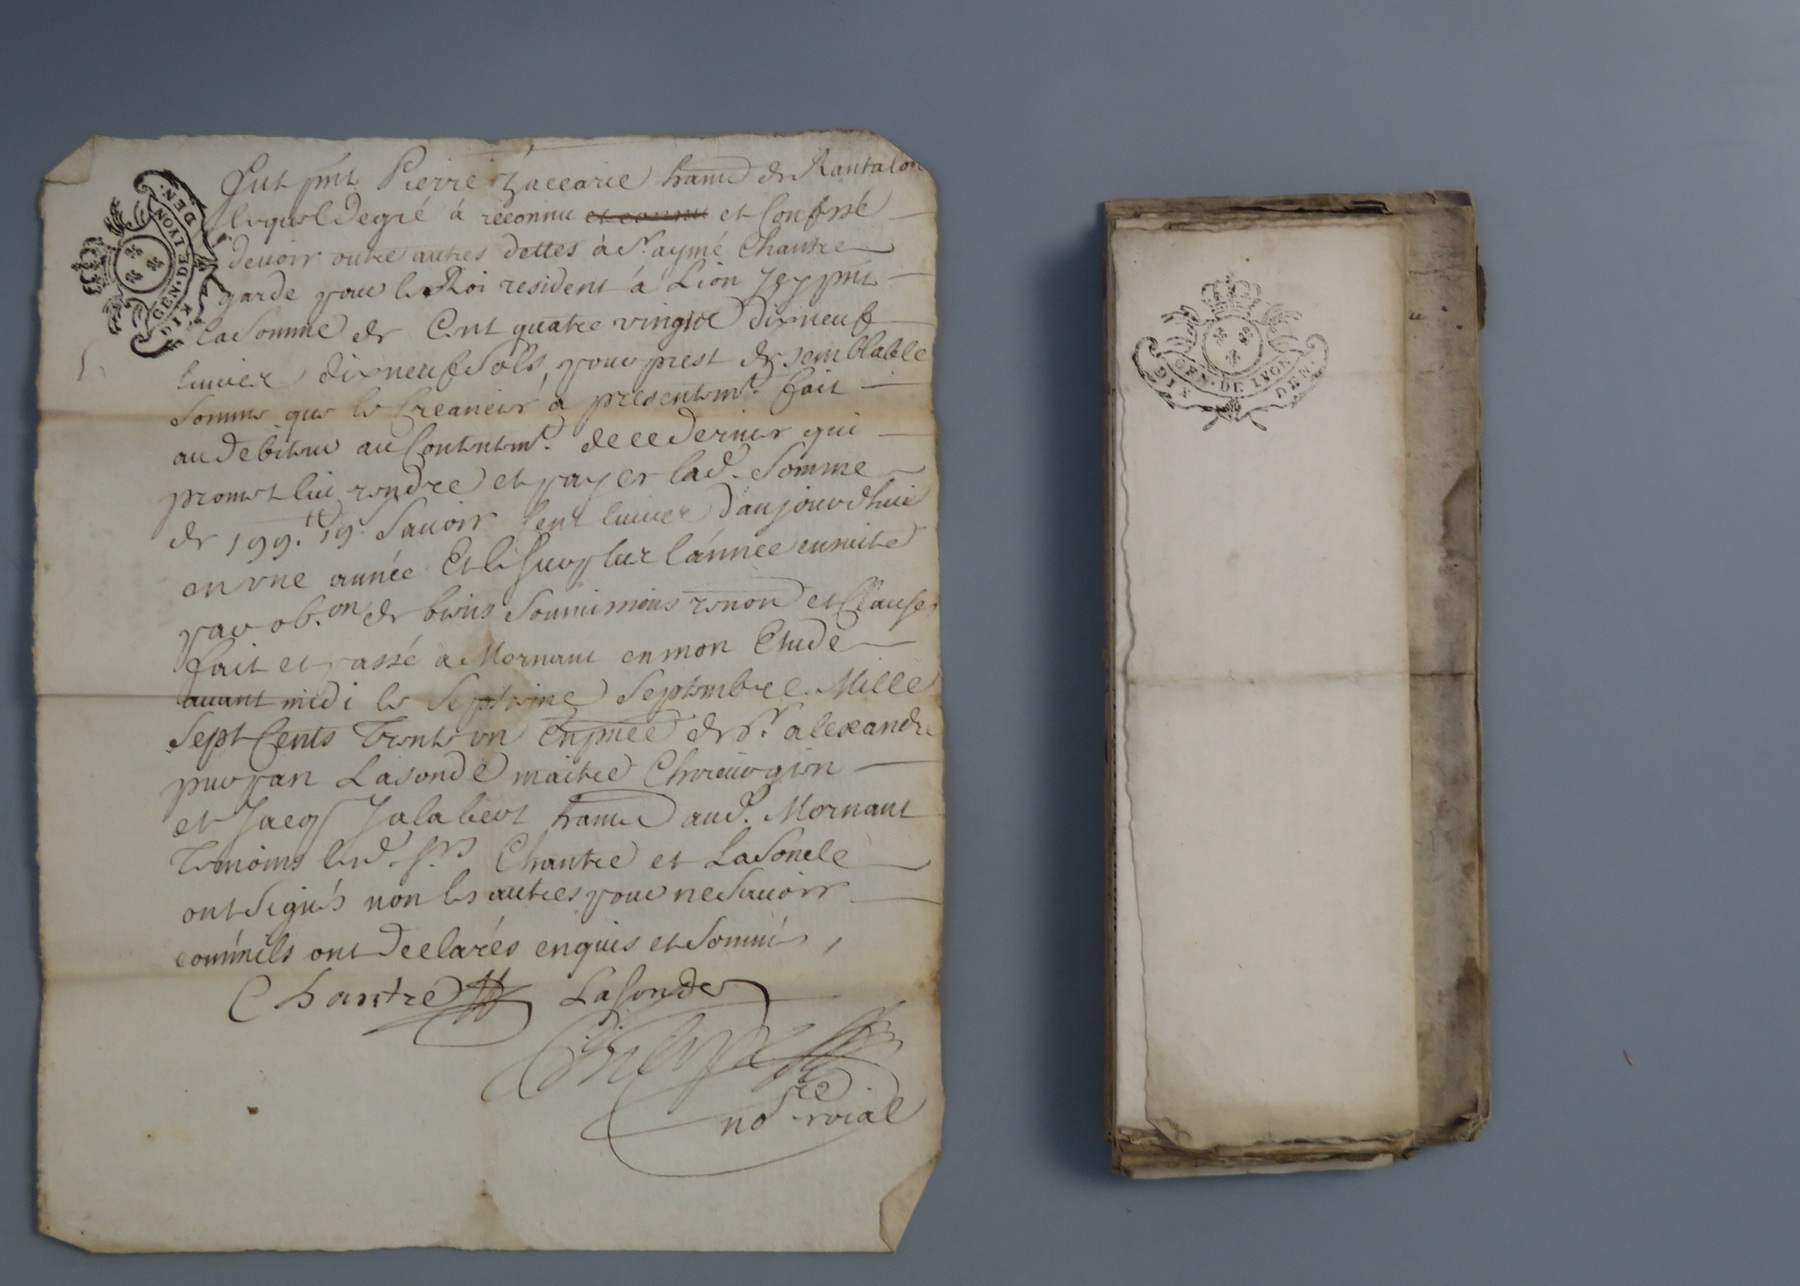 GEN · DE LYON
DIX DEN.
Fut pnt Pierre Zaccarie hant de Rantalon
lequel de gré à reconnu et connu et Confessé
devoir outre autres dettes à Sr aymé Chantre
garde pour le Roi resident à Lion icy pnt
la Somme de Cent quatre vingt dixneuf
livres dixneuf Sols, pour prest de semblable
Somme que le Creancier à presentemt. fait
au debiteur au Contentemt. de ce dernier qui
promet lui rendre et payer lad. Somme
de 199.tt 19 Savoir Cent livres d'aujourdhui
en une année Et le Surplus l'année ensuite
par ob.on de biens Soumissions renon et Clauses
fait et passé a Mornant en mon Etude
avant midi le Septieme Septembre Mille
Sept Cents trente un En pnce de Sr. alexandre
puopan Lasonde maitre Chirurgien
et Jacq Jalabert hant aud. Mornant
temoins lesd. Srs Chantre et Lasonde
ont Signés non les autres pour ne Savoir
comme ils ont declarés enquis et Sommés,
Chantre Lasonde
nore roial
GEN · DE LYON
DIX DEN.